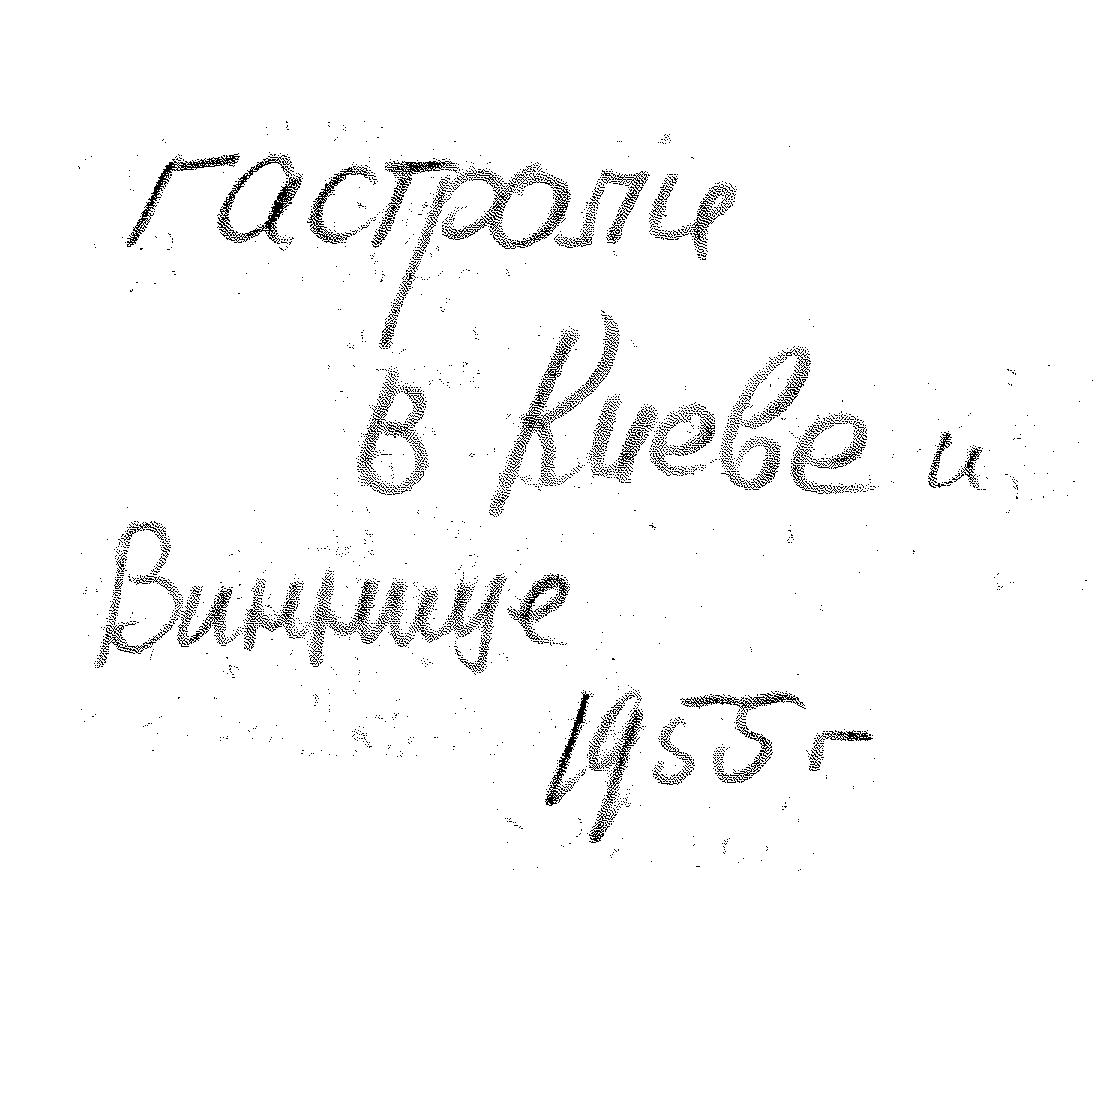 гастроли
в Киеве и
Виннице
1955 г